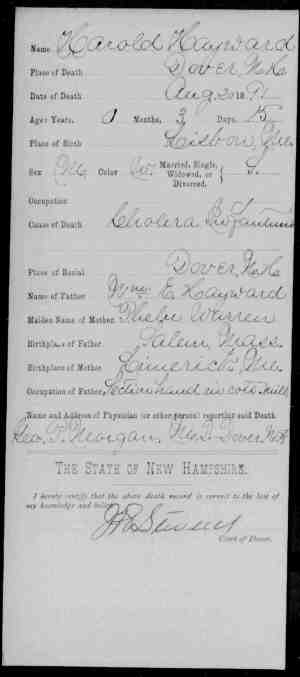 Name Harold Hayward
Place of Death Dover, N. H.
Date of Death Aug. 20 1891
Age: Years, 0 Months, 3 Days, 15
Place of Birth Lisbon, Me.
Sex M Color W. Married, Single, Widowed, or Divorced. } S.
Occupation
Cause of Death Cholera Infantum
Place of Burial Dover, N. H.
Name of Father Wm. E. Hayward
Maiden Name of Mother Phebe Warren
Birthplace of Father Salem, Mass.
Birthplace of Mother Limerick, Me.
Occupation of Father, Section hand in cott. mill
Name and Address of Physician (or other person) reporting said Death
Geo. P. Morgan, M.D. Dover, N.H.
THE STATE OF NEW HAMPSHIRE.
I hereby certify that the above death record is correct to the best of
my knowledge and belief.
Clerk of Dover.